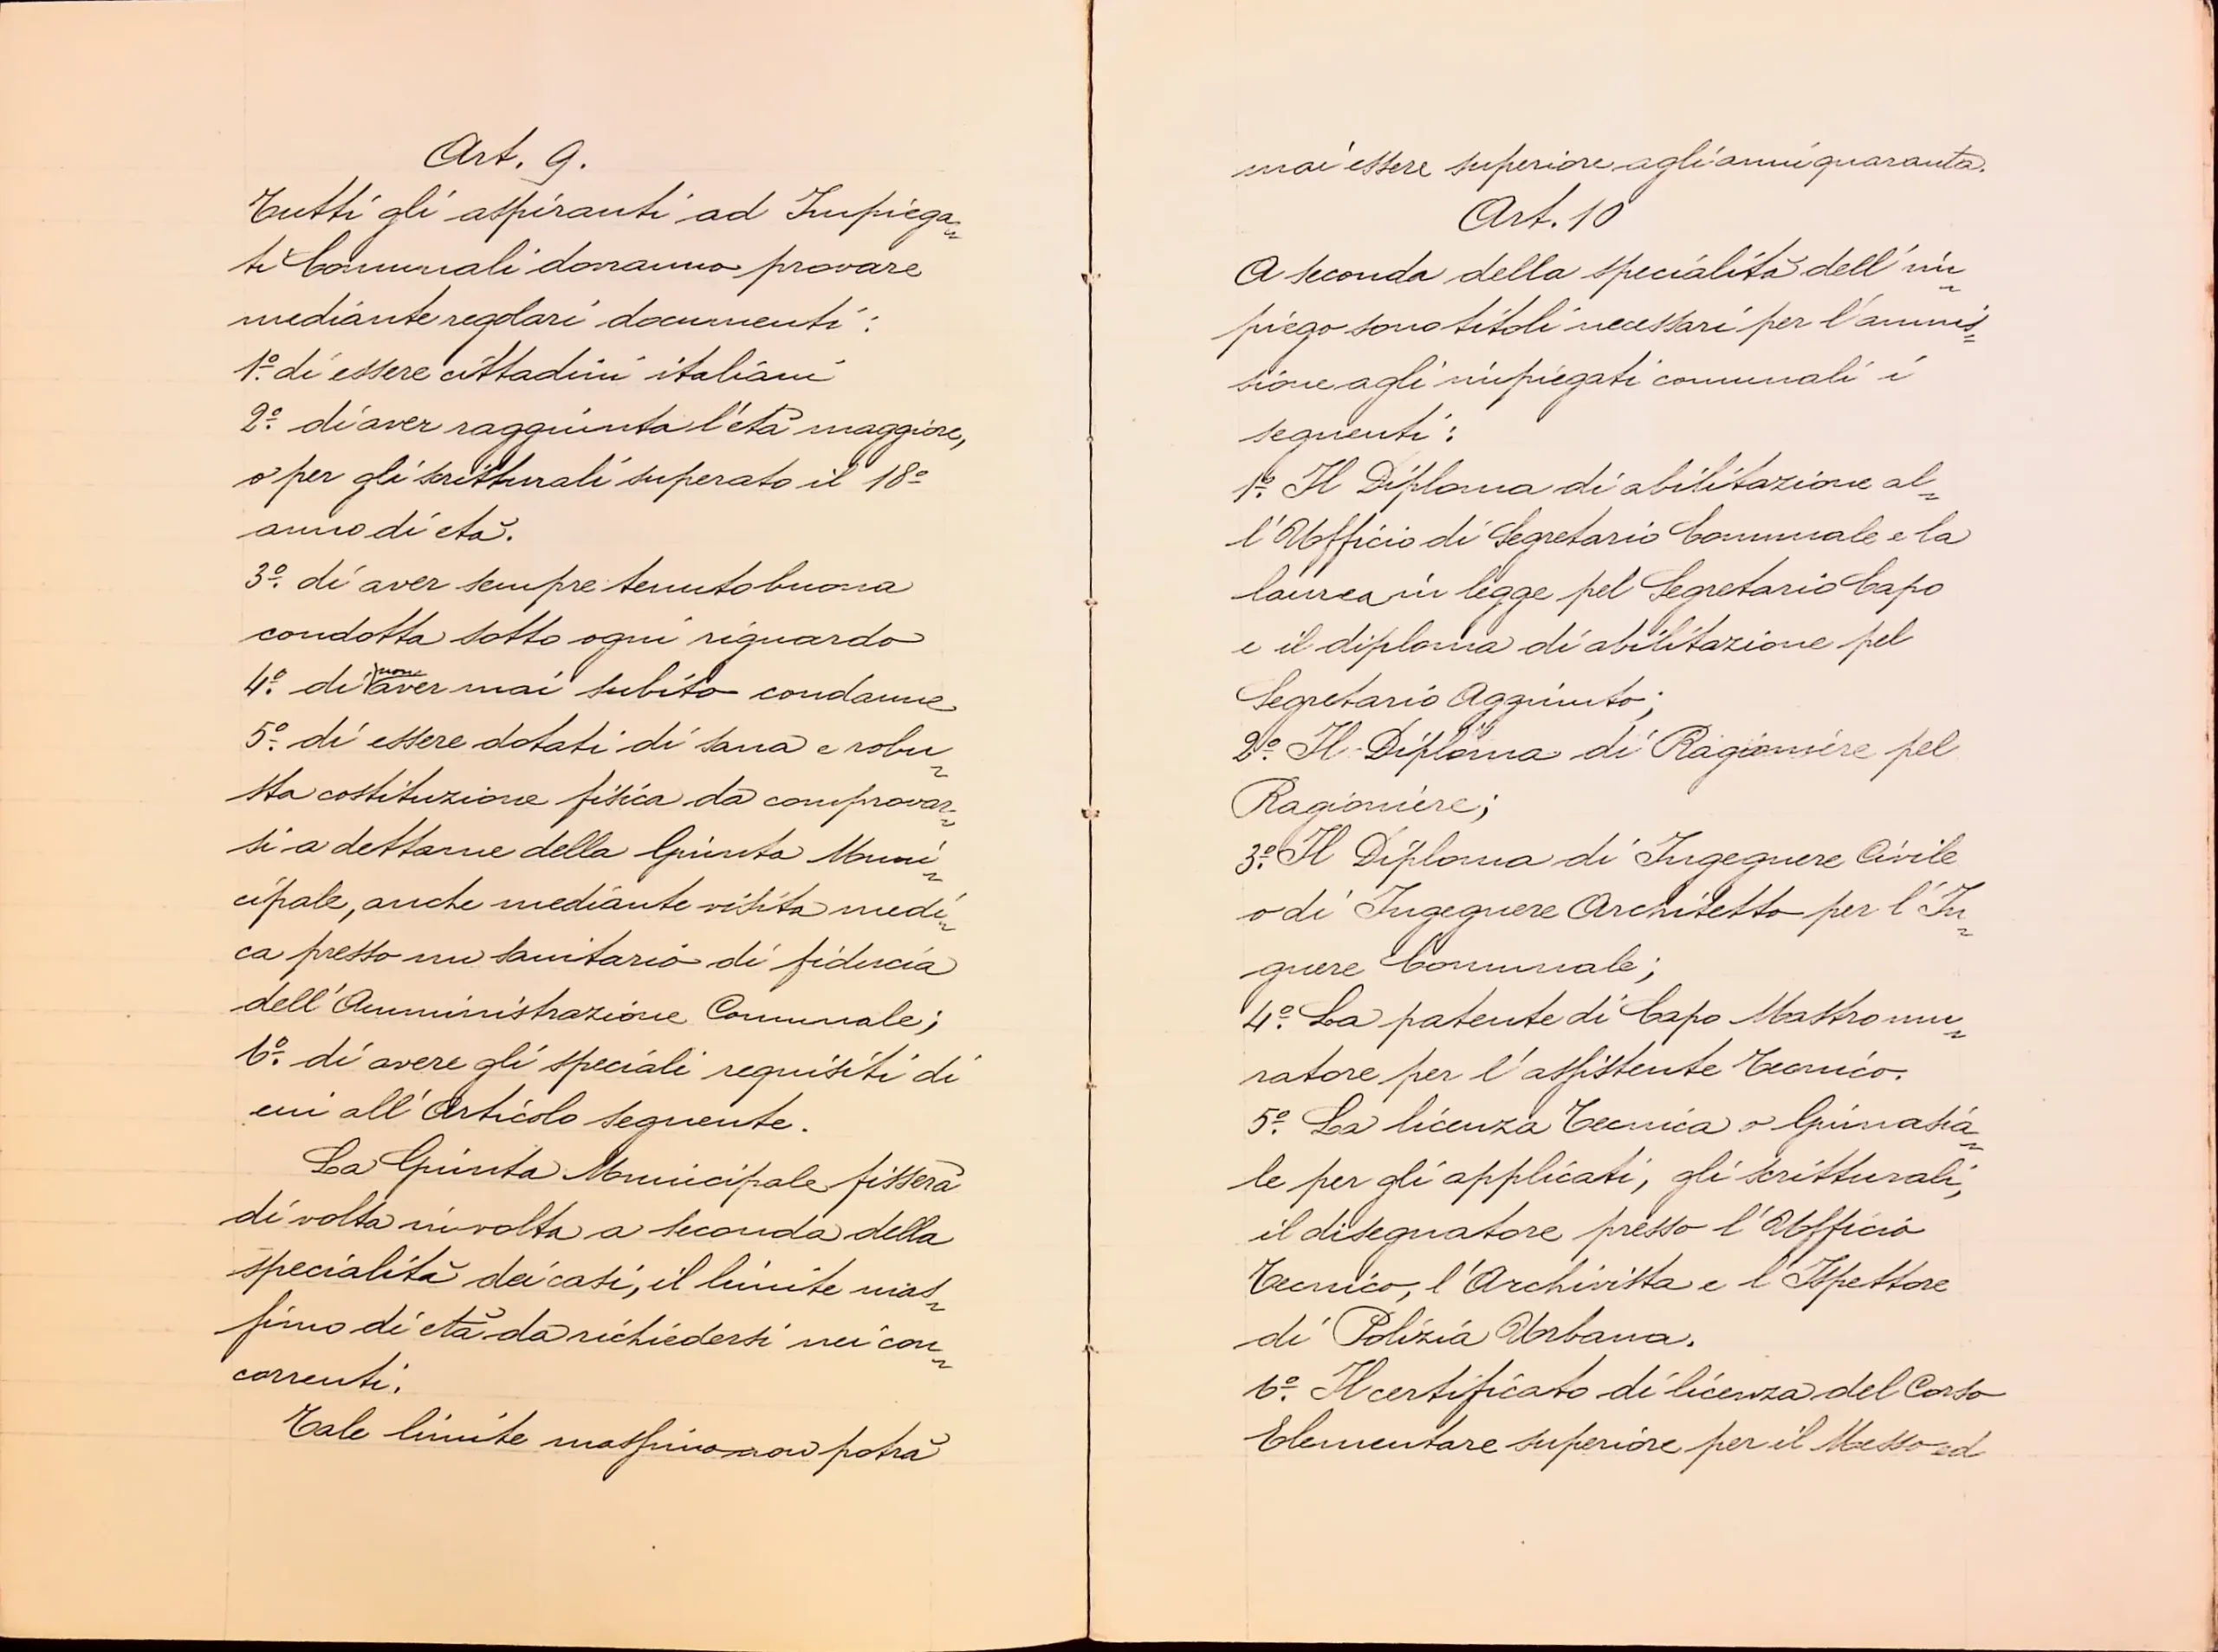 Art. 9.
Tutti gli aspiranti ad Impiega=
ti Comunali dovranno provare
mediante regolari documenti:
1º. di essere cittadini italiani
2º. di aver raggiunta l'età maggiore,
o per gli scritturali superato il 18º
anno di età.
3º. di aver sempre tenuto buona
condotta sotto ogni riguardo
4º. di non aver mai subito condanne
5º. di essere dotati di sana e robu=
sta costituzione fisica da comprovar=
si a dettame della Giunta Muni=
cipale, anche mediante visita medi=
ca presso un sanitario di fiducia
dell'Amministrazione Comunale;
6º. di avere gli speciali requisiti di
cui all'Articolo seguente.
La Giunta Municipale fisserà
di volta in volta a seconda della
specialità dei casi, il limite mas=
simo di età da richiedersi nei con=
correnti.
Tale limite massimo non potrà
mai essere superiore agli anni quaranta.
Art. 10
A seconda della specialità dell'im=
piego sono titoli necessari per l'ammis=
sione agli impiegati comunali i
seguenti:
1º. Il Diploma di abilitazione al=
l'Ufficio di Segretario Comunale e la
laurea in legge pel Segretario Capo
e il diploma di abilitazione pel
Segretario Aggiunto;
2º. Il Diploma di Ragioniere pel
Ragioniere;
3º. Il Diploma di Ingegnere Civile
o di Ingegnere Architetto per l'In=
gnere Comunale;
4º. La patente di Capo Mastro mu=
ratore per l'assistente Tecnico.
5º. La licenza Tecnica o Ginnasia=
le per gli applicati, gli scritturali,
il disegnatore presso l'Ufficio
Tecnico, l'Archivista e l'Ispettore
di Polizia Urbana.
6º. Il certificato di licenza del Corso
Elementare superiore per il Messo ed